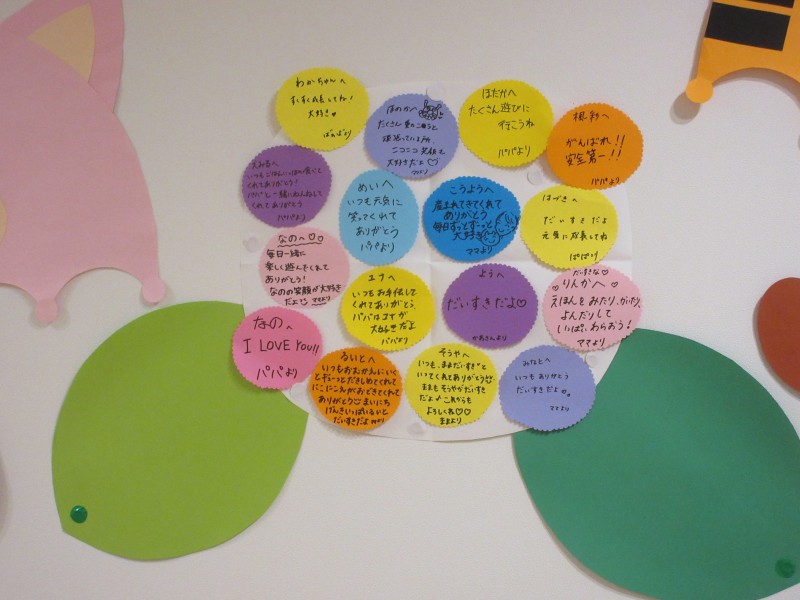 わかちゃんへ
すくすく成長してね!
大好き♥
ぱぱより
ほのかへ
たくさん
ニコニコ笑顔で
大好きだよ♡
ほだかへ
たくさん遊びに
行こうね
パパより
へ
がんばれ!!
安全第一!!
パパより
へ
いつもごはんいっぱい食べて
くれてありがとう!
パパと一緒にねんねして
くれてありがとう
パパより
めいへ
いつも元気に
笑ってくれて
ありがとう
パパより
こうようへ
産まれてきてくれて
ありがとう
毎日ずっとずーっと
大好き
ママより
はづきへ
だいすきだよ
元気に成長してね
ぱぱより
なのへ♡
毎日一緒に
楽しく遊んでくれて
ありがとう!
なのの笑顔が大好き
だよ ママより
ユナへ
いつもお手伝いして
くれてありがとう
パパはユナが
大好きだよ
パパより
ようへ
だいすきだよ♡
かあさんより
だいすきな♡
♡りんかへ♡
えほんをみたり、かいたり、
よんだりして
いっぱいわらおう!
ママより
なのへ
I LOVE YOU!!
パパより
るいとへ
いつもおかあかんにいく
とぎゅーっとだきしめてくれて
にこにこえがおできてくれて
ありがとう まいにち
げんきいっぱいるいと
だいすきだよ
そうやへ
いつも、ままだいすきと
いってくれてありがとう
ままもそうやがだいすき
だよ♪これからも
よろしくね♡♡
ままより
みなとへ
いつもありがとう
だいすきだよ
ママより